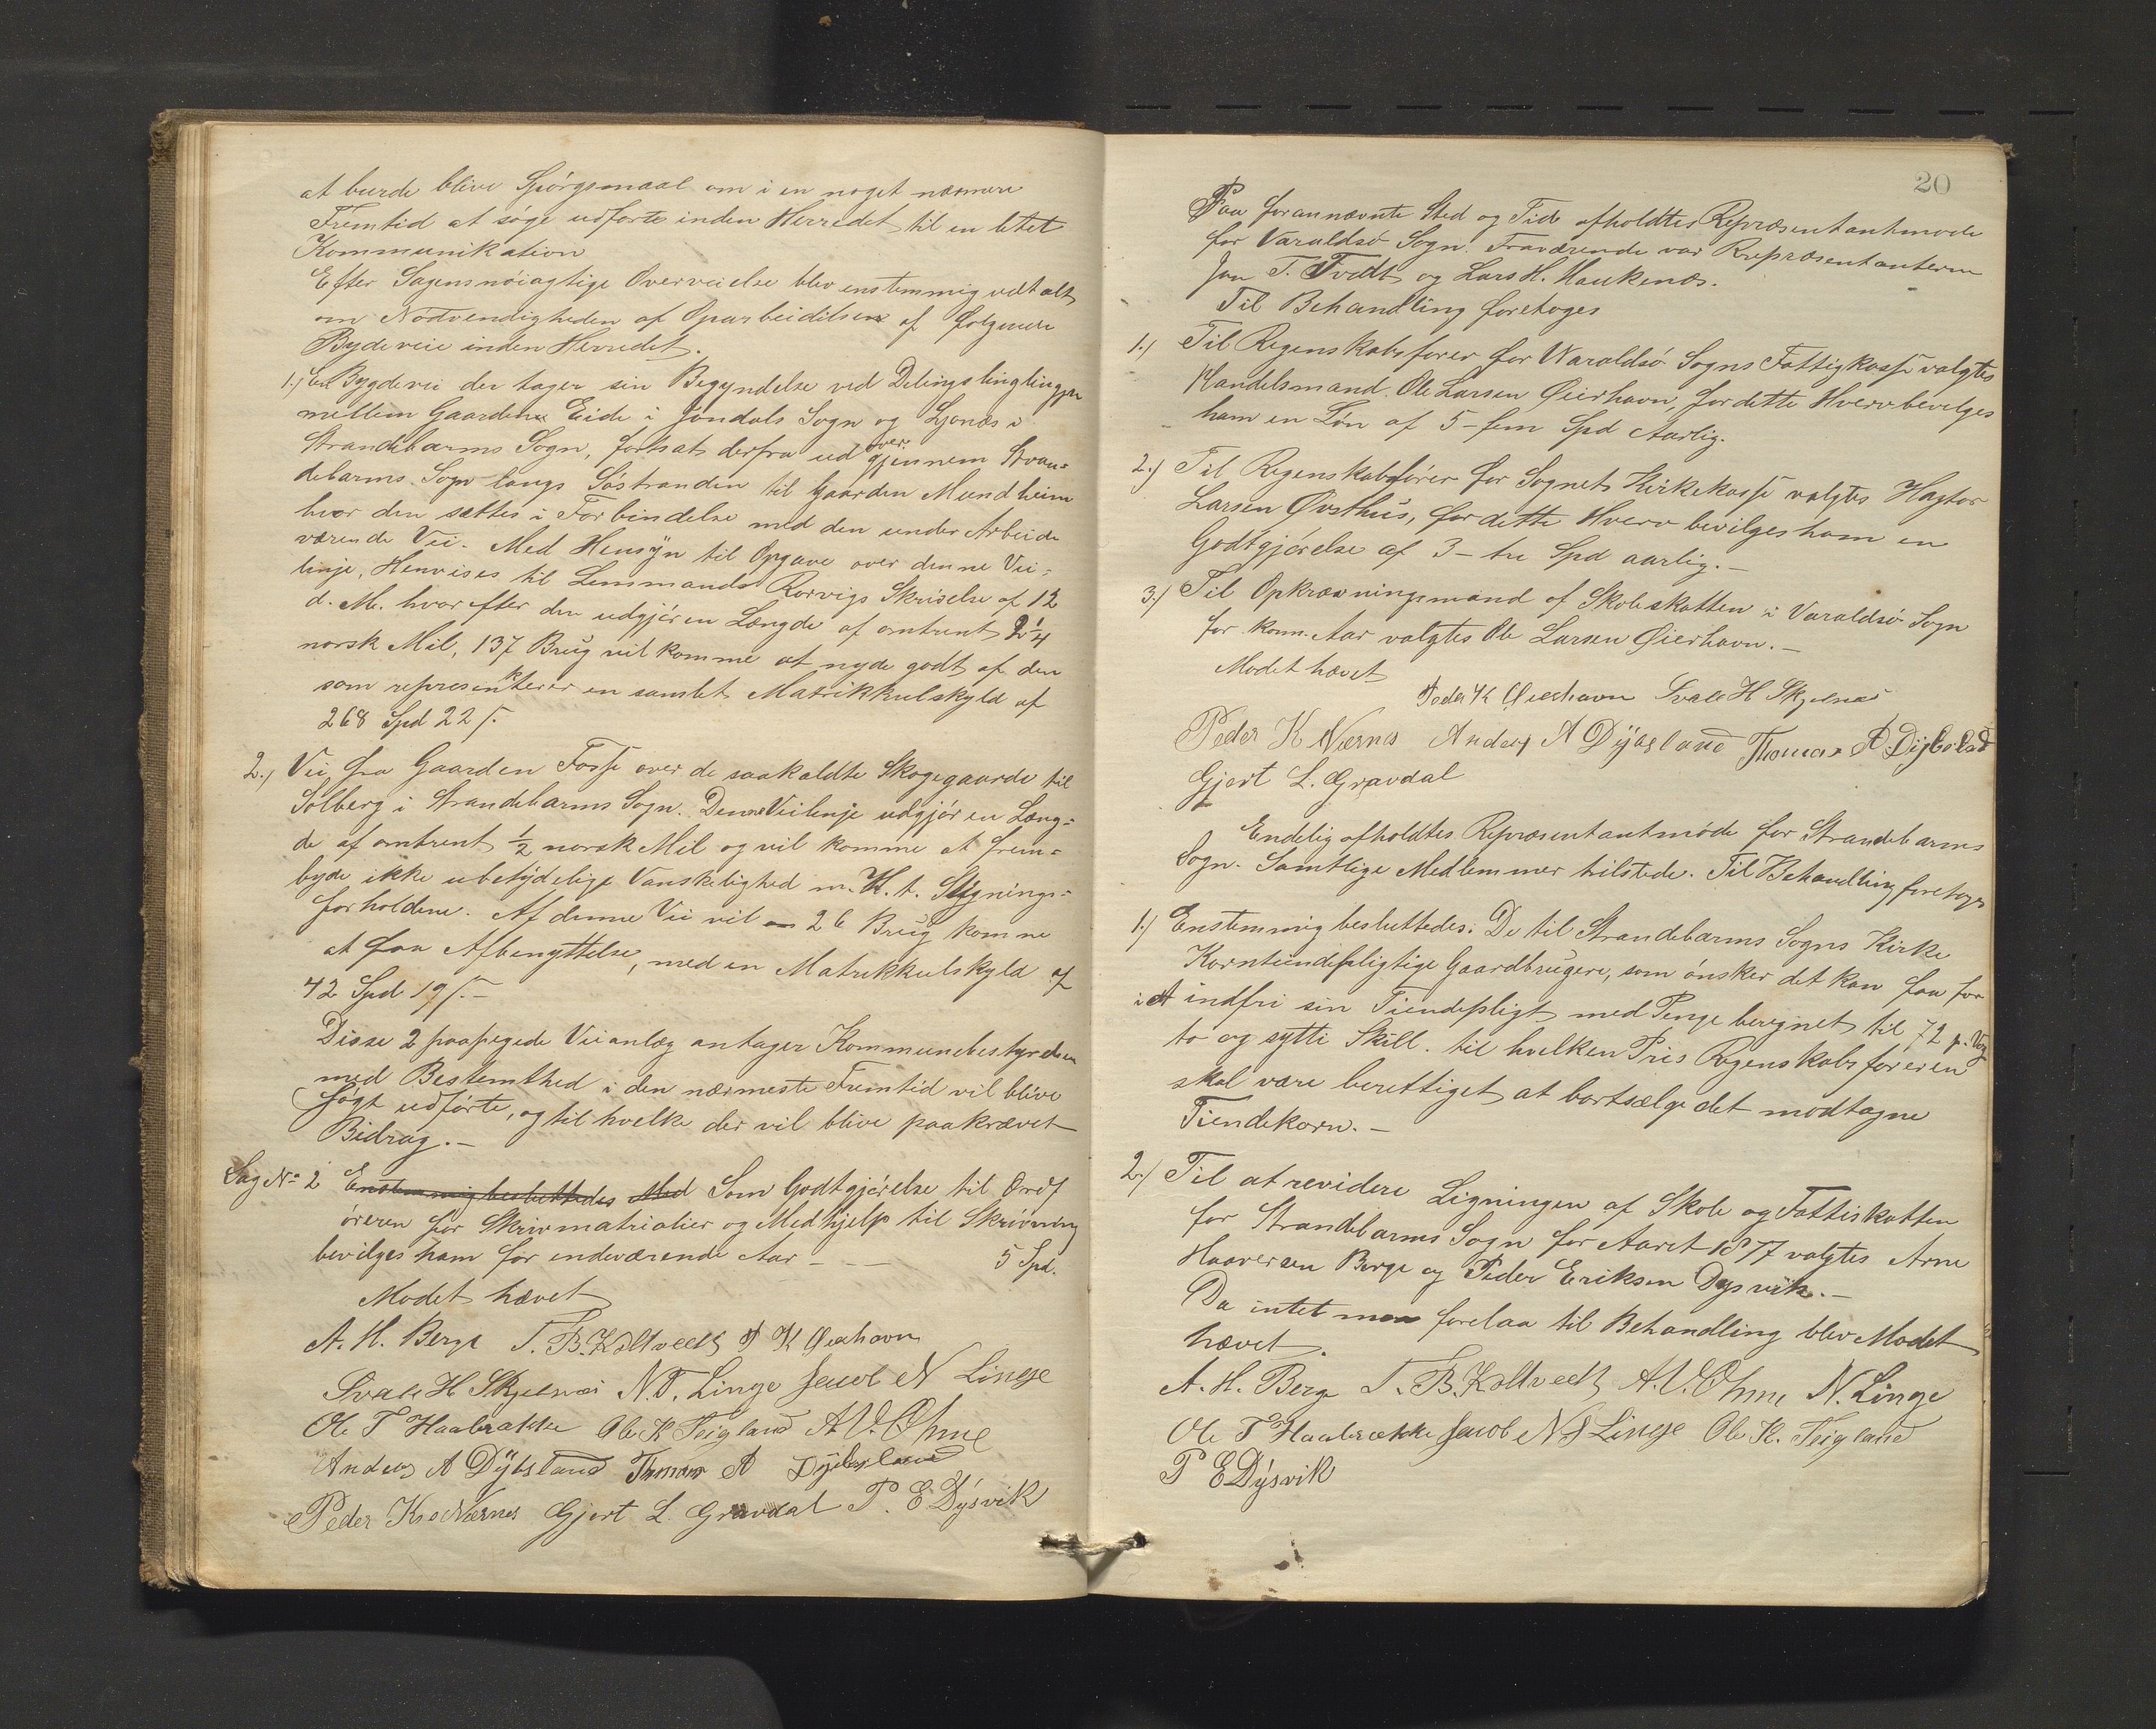 at burde blive Spörgsmaal om i en noget nærmere
Fremtid at söge udförte inden Herredet til en letet
Kommunikation
Efter Sagens nöiagtige Overveielse blev enstemmig udtalt
om Nödvendigheden af Oparbeidelsen af følgende
Bydeveie inden Herredet.
1.) En Bygdevei der tager sin Begyndelse ved Delingslinglingjen
mellem Gaardene Eide i Jondals Sogn og Ljonæs i
Strandebarms Sogn, fortsat derfra ud over gjennem Stran=
debarms Sogn langs Söstranden til Gaarden Mundheim
hvor den sættes i Forbindelse med den under Arbeide
værende Vei. Med Hensyn til Opgave over denne Vei=
linje, Henvises til Lensmands Rorvigs Skrivelse af 12
d. M. hvorefter den udgjör en Længde af omtrent 2 1/4
norsk Mil, 137 Brug vil komme at nyde godt af den
som representerer en samlet Matrikkulskyld af
268 Spd 22 s.
2.) Vei fra Gaarden Fosse over de saakaldte Skogegaarde til
Solberg i Strandebarms Sogn. Denne Veilinje udgjör en Læng=
de af omtrent 1/2 norsk Mil og vil komme at frem=
byde ikke ubetydelige Vanskelighed m. H. t. Stignings=
forholdene. Af denne Vei vil 26 Brug komme
at faa Afbenyttelse, med en Matrikkulskyld af
42 Spd 19 s. –
Disse 2 paapegede Veianlæg antager Kommunebestyrelsen
med Bestemthed i den nærmeste Fremtid vil blive
sögt udförte, og til hvelke der vil blive paakrævet
Bidrag. –
Sag No 2 Enstemmig besluttedes Med Som Godtgjörelse til Ordf
öreren for Skrivmatrialier og Medhjelp til Skrivning
bevilges ham for indeværende Aar – – – 5 Spd.
Modet hævet
A. H. Berge T. B. Koltveedt P K Øierhavn
Svale H Skjelnæs N. T. Linge Jacob N Linge
Ole T Haabrække Ole K Teigland A V. Ohme
Anders A Dÿbsland Thomas A Dÿbsland
Peder K Nernes Gjert L. Gravdal P. E Dÿsvik
20
Paa forannævnte Sted og Tid afholdtes Repræsentantmode
for Varaldsö Sogn. Fraværende var Repræsentanterne
Jon T. Tvedt og Lars H. Haukenæs.
Til Behandling foretoges
1.) Til Regenskabsförer for Waraldsö Sogns Fattigkasse valgtes
Handelsmand Ole Larsen Øierhavn, for dette Hverv bevilges
ham en Løn af 5 – fem Spd Aarlig.
2.) Til Regenskabsförer for Sognets Kirkekasse valgtes Hagtor
Larsen Øvsthus, for dette Hverv bevilges ham en
Godtgjörelse af 3 – tre Spd aarlig. –
3.) Til Opkrævningsmand af Skoleskatten i Varaldsö Sogn
for kom. Aar valgtes Ole Larsen Øierhavn. –
Modet hævet
Peder K Øierhavn Svale H Skjelnæs
Peder K Nernes Anders A Dÿbsland Thomas A Dÿbslad
Gjert L. Gravdal
Endelig afholdtes Repræsentantmöde for Strandebarms
Sogn. Samtlige Medlemmer tilstede. Til Behandling foretoges
1.) Enstemmig besluttedes: De til Strandebarms Sogns Kirke
Korntiendepligtige Gaardbrugere, som önsker det kan faa for
i A indfri sin Tiendepligt med Penge beregnet til 72 p. Vog
to og sytti Skill. til hvelken Pris Regenskabsföreren
skal være berettiget at bortsælge det modtagne
Tiendekorn. –
2.) Til at revidere Ligningen af Skole og Fattiskatten
for Strandebarms Sogn for Aaret 1877 valgtes Arne
Haaversen Berge og Peder Eriksen Dysvik. –
Da intet mere forelaa til Behandling blev Modet
hævet.
A. H. Berge T. B. Koltveedt A. V. Ohme N. Linge
Ole T Haabrække Jacob N Linge Ole K. Teigland
P E Dÿsvik